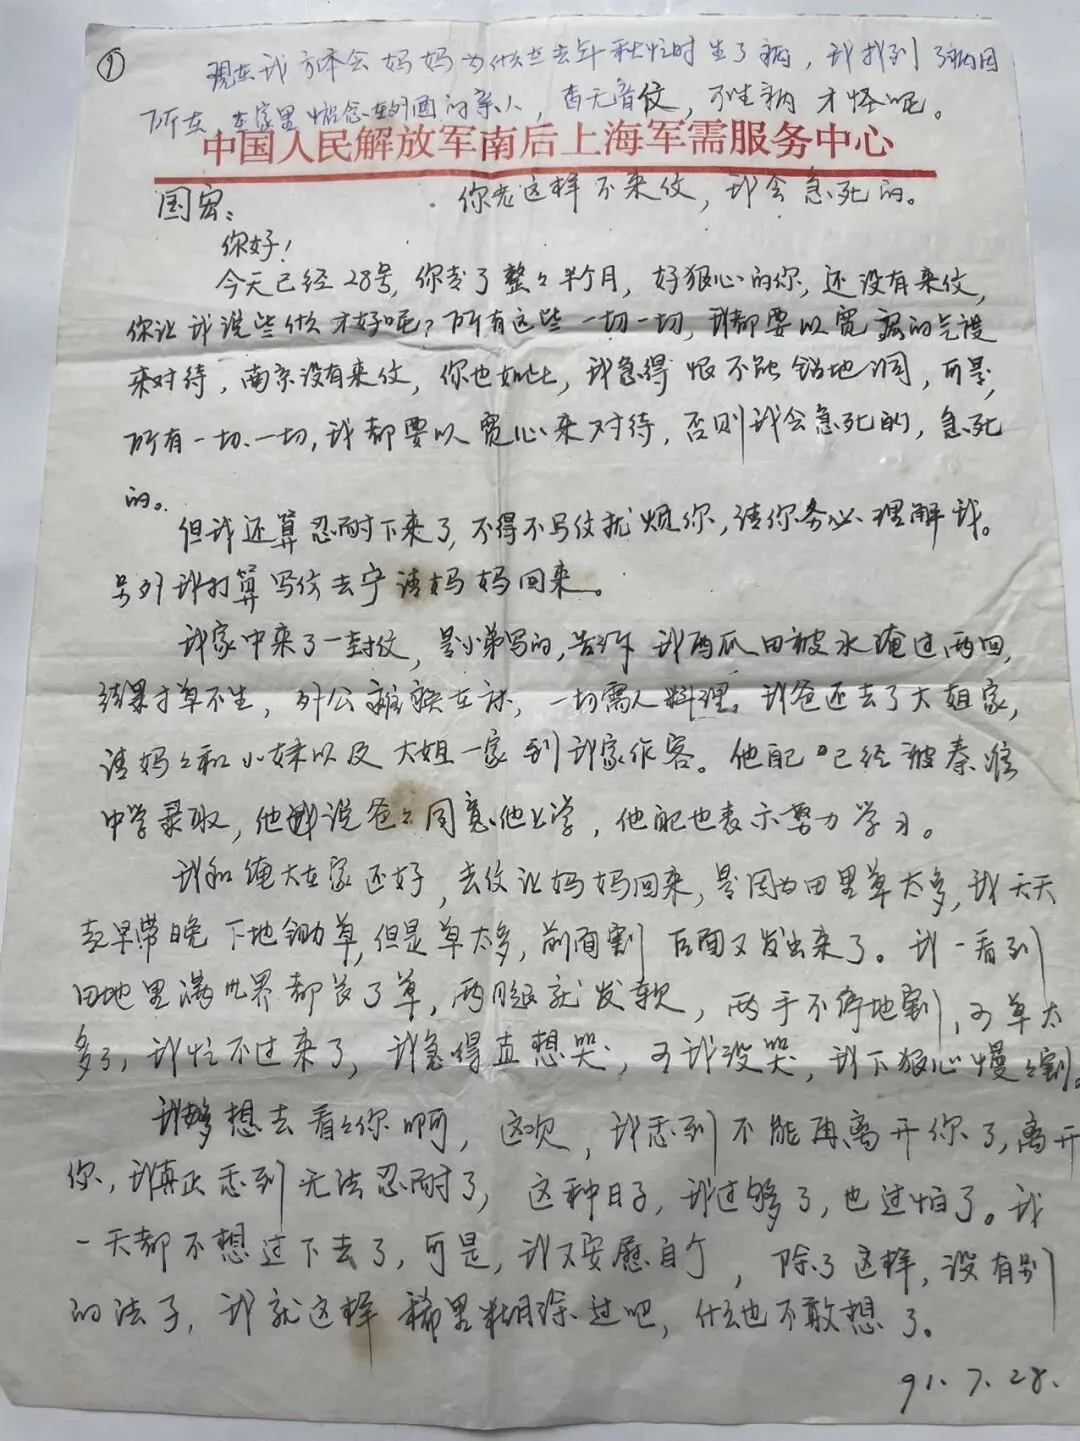 ①
现在我方体会妈妈为什么去年秋忙时生了病，我找到了病因
所在，在家里惦念在外面的亲人，杳无音信，不生病才怪呢。
中国人民解放军南后上海军需服务中心
你老这样不来信，我会急死的。
国宏：
你好！
今天已经28号，你走了整々半个月，好狠心的你，还没有来信，
你让我说些什么才好呢？所有这些一切一切，我都要以宽容的气度
来对待，南京没有来信，你也如此，我急得恨不能钻地洞，可是，
所有一切、一切，我都要以宽心来对待，否则我会急死的，急死
的。
但我还算忍耐下来了，不得不写信扰烦你，请你务必理解我。
另外我打算写信去宁请妈妈回来。
我家中来了一封信，是小弟写的，告诉我西瓜田被水淹过两回，
结果寸草不生，外公瘫痪在床，一切需人料理。我爸还去了大姐家，
请妈々和小妹以及大姐一家到我家作客。他配已经被秦淮
中学录取，他说爸々同意他上学，他配也表示努力学习。
我和俺大在家还好，去信让妈妈回来，是因为田里草太多，我天天
起早带晚下地锄草，但是草太多，前面割后面又发出来了。我一看到
田地里满世界都长了草，两腿就发软，两手不停地割，可草太
多了，我忙不过来了，我急得直想哭，可我没哭，我下狠心慢々割。
我够想去看々你啊，这次，我感到不能再离开你了，离开
你，我真正感到无法忍耐了，这种日子，我过够了，也过怕了。我
一天都不想过下去了，可是，我又安慰自个，除了这样，没有别
的法子，我就这样稀里糊涂过吧，什么也不敢想了。
91.7.28.